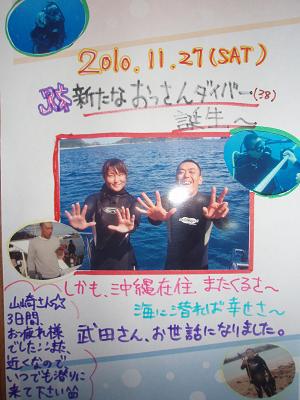 2010.11.27(SAT)
新たなおっさんダイバー(38)
誕生〜
しかも、沖縄在住、またくるさ〜
海に潜れば幸せさ〜
武田さん、お世話になりました。
山崎さん☆
3日間、
お疲れ様
でした!!また、
近くなので
いつでも潜りに
来て下さい笛